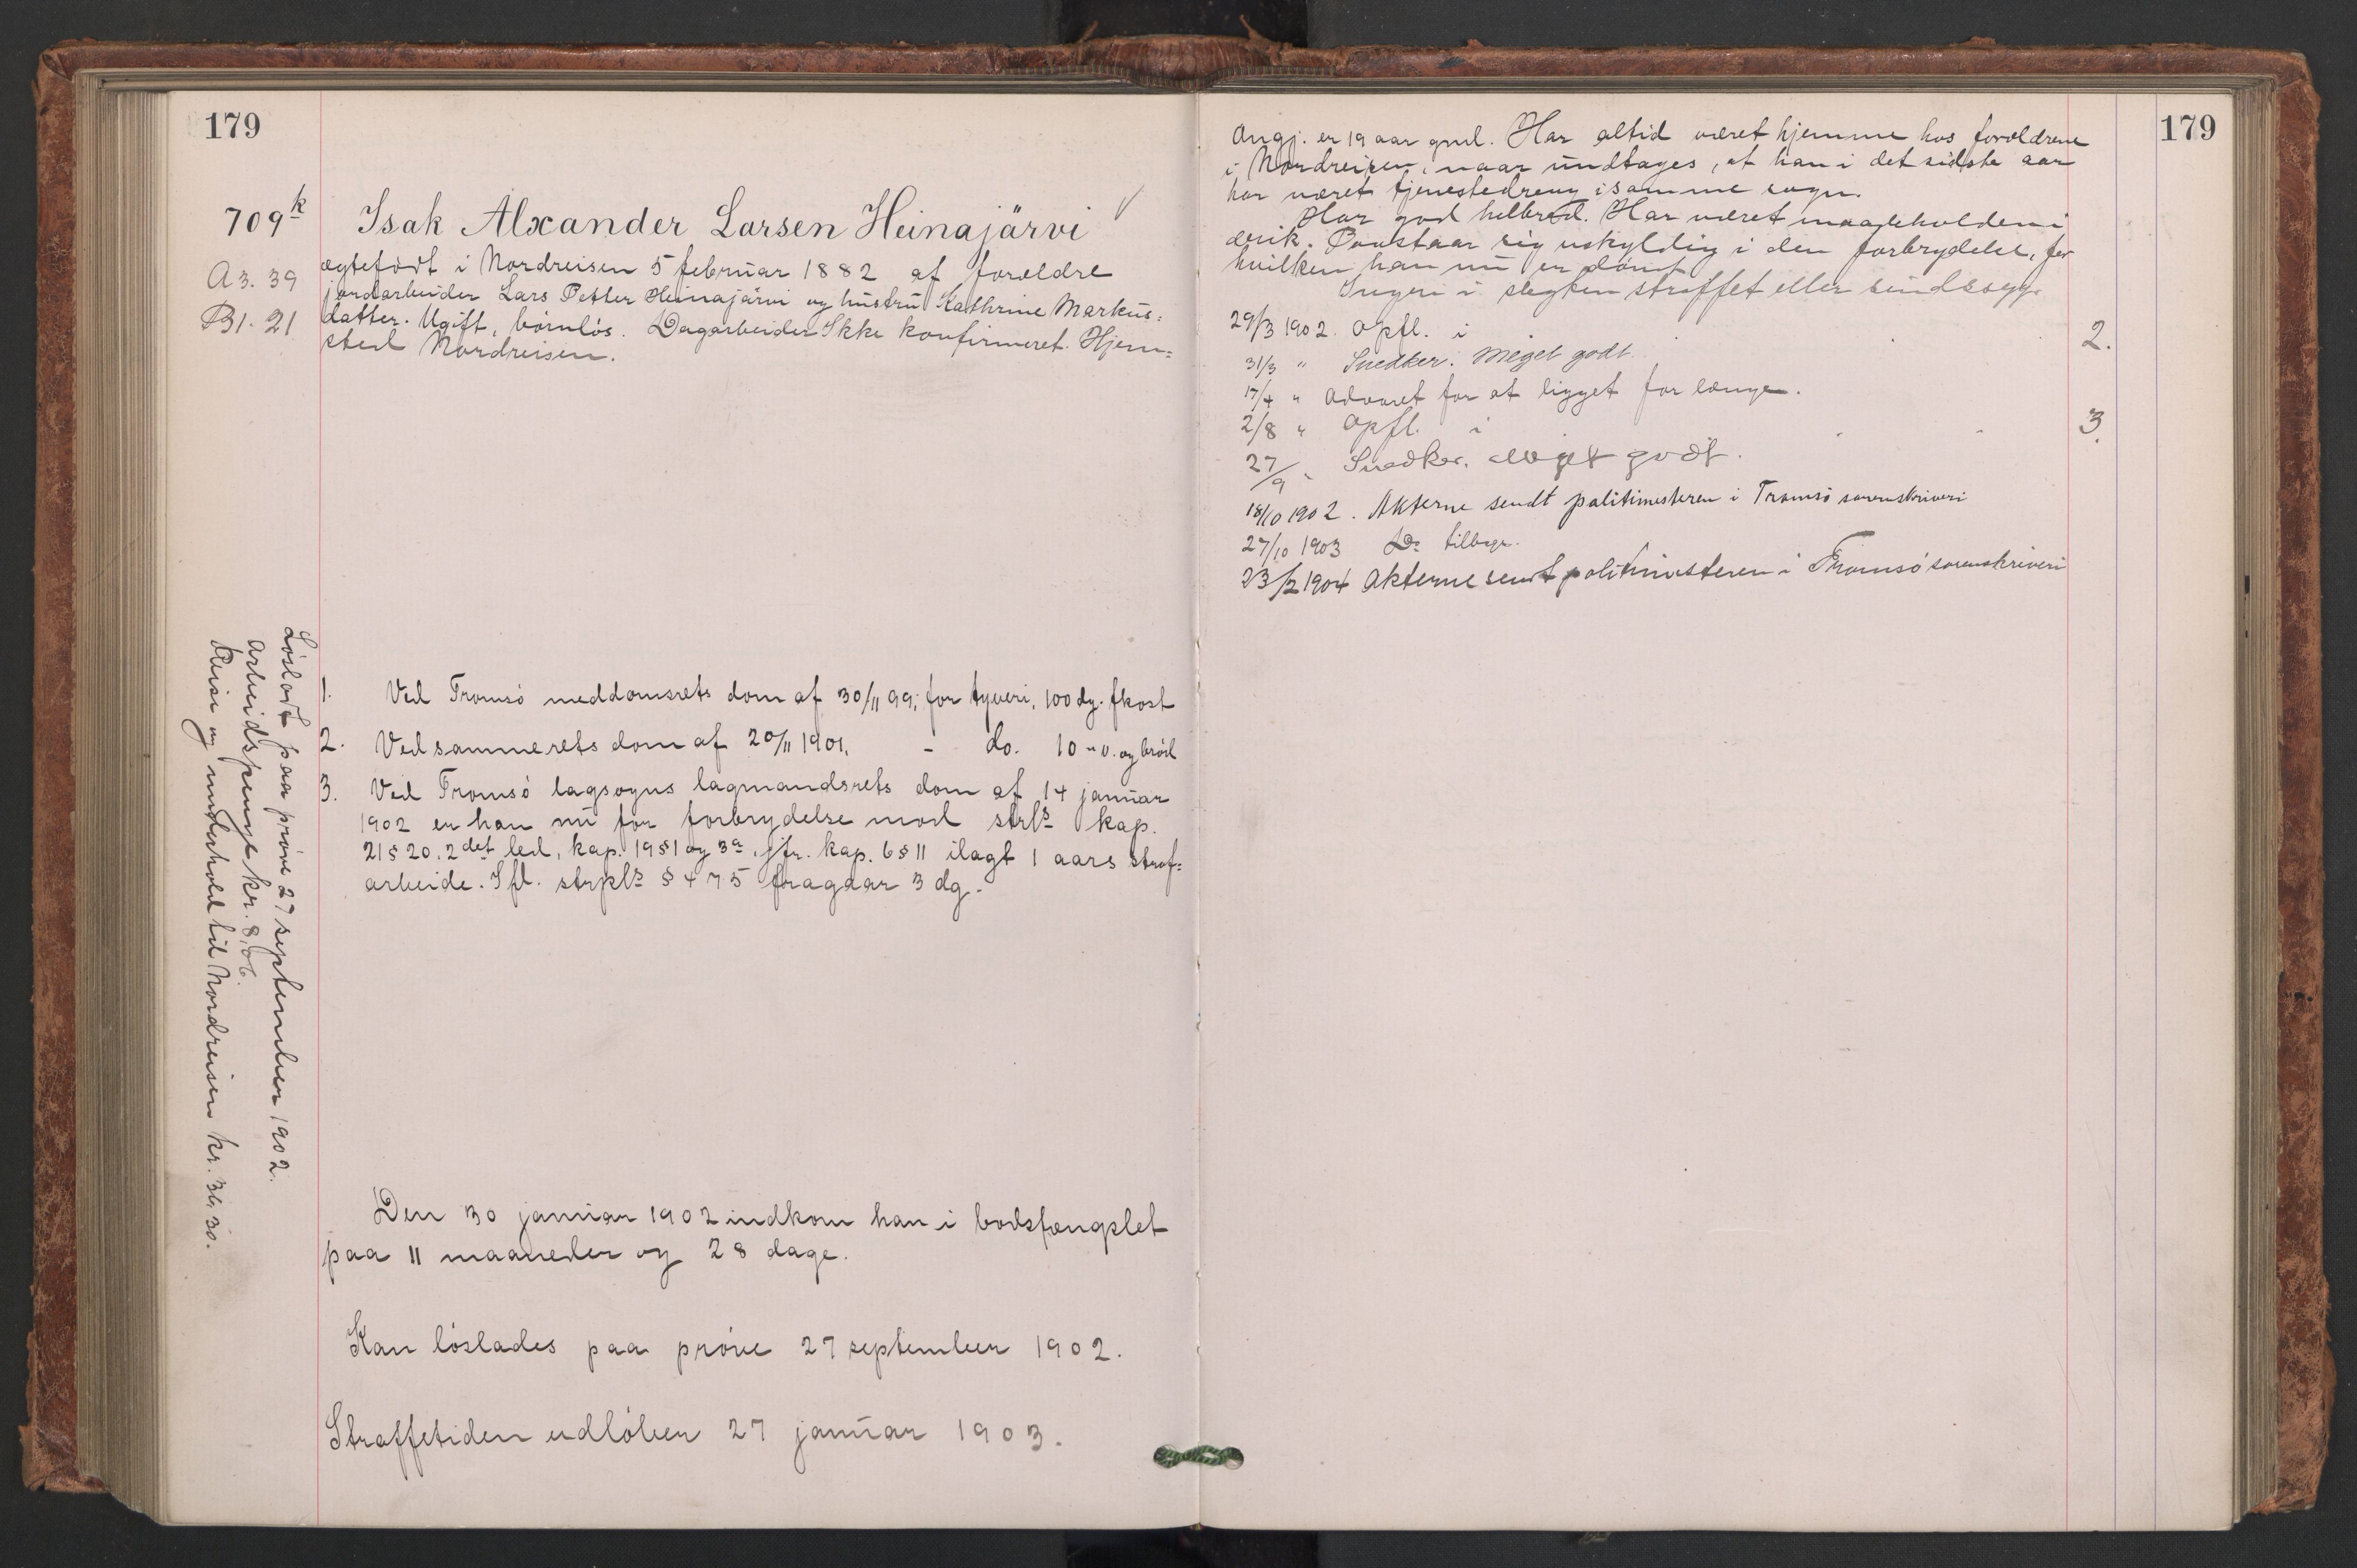 179
709k
A3. 39
B1. 21
Isak Alxander Larsen Heinajärvi
ægtefødt i Nordreisen 5 februar 1882 af forældre
jordarbeider Lars Petter Heinajärvi og hustru Kathrine Markus=
datter. Ugift, børnløs. Dagarbeider Ikke konfirmeret. Hjem=
sted Nordreisen.
1. Ved Tromsø meddomsrets dom af 30/11 99; for tyveri, 100 dg. fkost
2. Ved sammerets dom af 20/11 1901. - do. 10 " v. og brød
3. Ved Tromsø lagsogns lagmandsrets dom af 14 januar
1902 er han nu for forbrydelse mod strls kap.
21 § 20, 2det led, kap. 19 § 1 og 3a, jfr. kap. 6 § 11 ilagt 1 aars straf=
arbeide. Ifl. strpls § 475 fragaar 3 dg.
Den 30 januar 1902 indkom han i bodsfængslet
paa 11 maaneder og 28 dage.
Kan løslades paa prøve 27 september 1902.
Straffetiden udløber 27 januar 1903.
Løsladt paa prøve 27 september 1902.
Arbeidspenge kr. 8,06.
Reise og underhold til Nordreisen kr. 36,30.
179
Angj. er 19 aar gml. Har altid været hjemme hos forældrene
i Nordreisen, naar undtages, at han i det sidste aar
har været tjenestedreng i samme sogn.
Har god helbred. Har været maadeholden i
drik. Paastaar sig uskyldig i den forbrydelse, for
hvilken han nu er dømt.
Ingen i slegten straffet eller sindssyg.
29/3 1902. Opfl. i 2.
31/3 " Snedker. Meget godt.
17/4 " Advaret for at ligget for længe.
2/8 " Opfl. i 3.
27/9 " Snedker. Meget godt.
18/10 1902. Akterne sendt politimesteren i Tromsø sorenskriveri
27/10 1903 Do tilbage.
23/2 1904 Akterne sendt politimesteren i Tromsø sorenskriveri